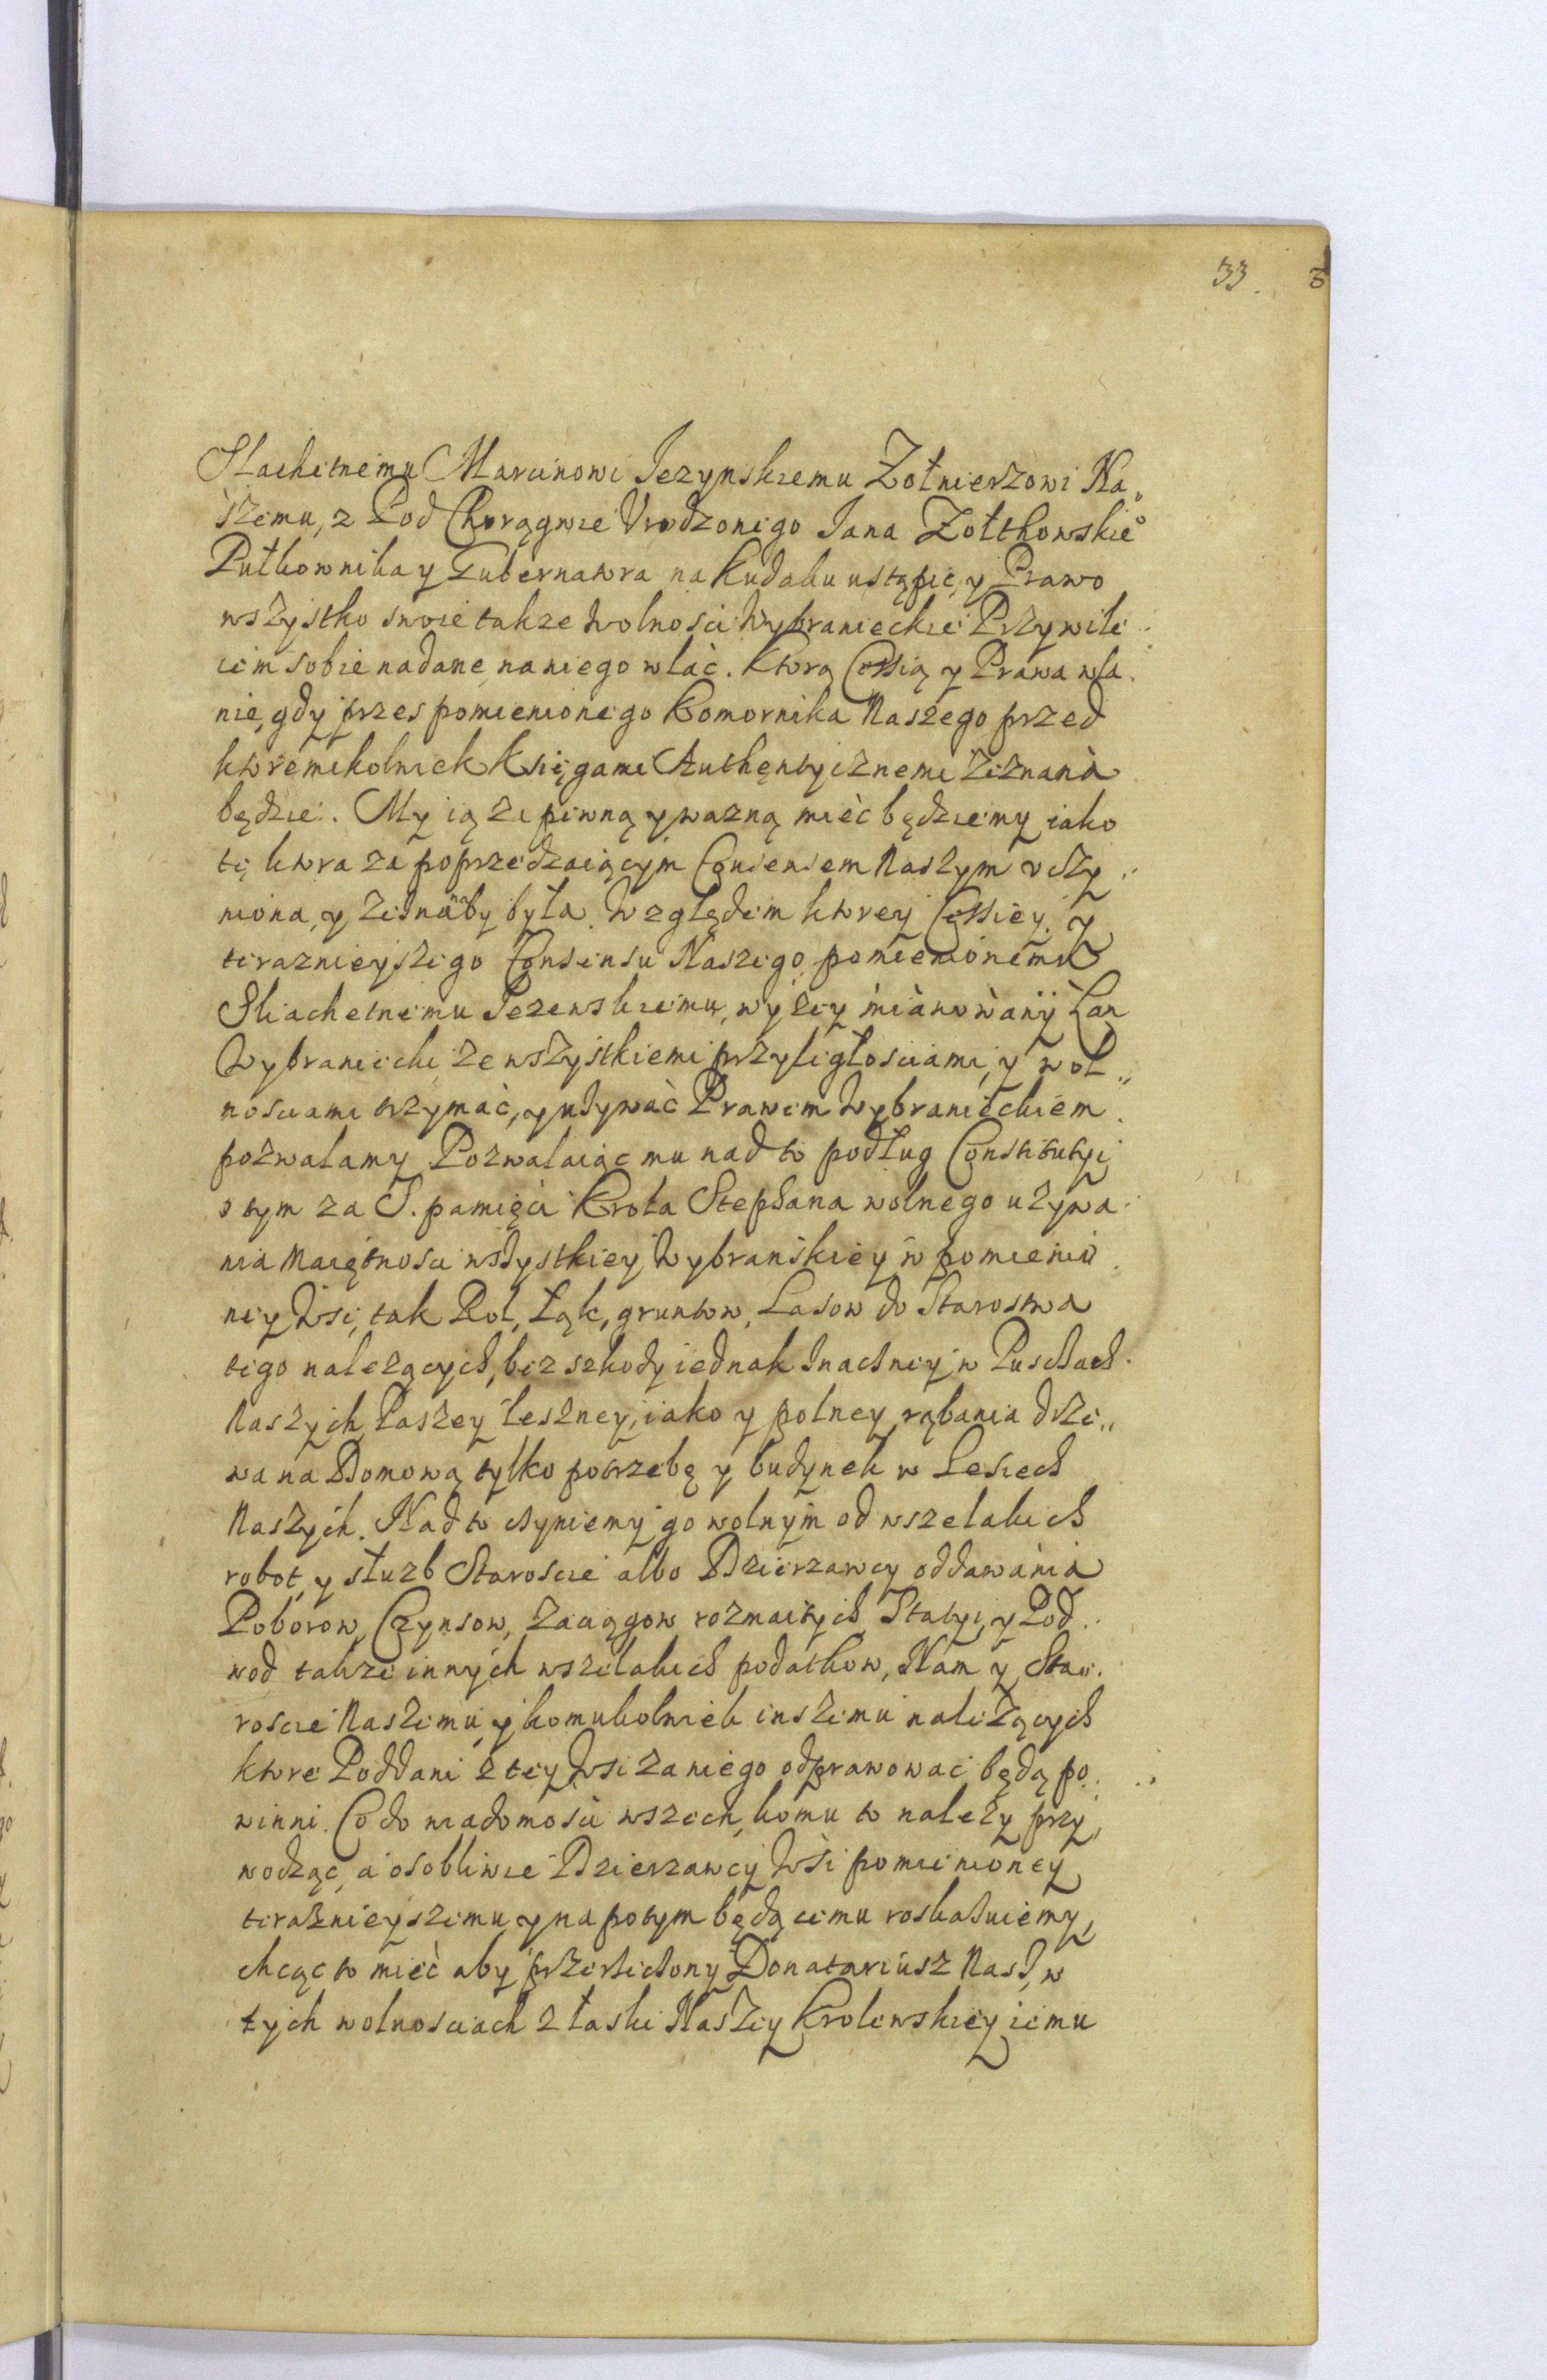 33.
Slachetnemu Marcinowi Jezynskiemu Żołnierzowi Na„
szemu, z Pod Chorągwie Urodzonego Jana Zołtkowskieo
Pułkownika y Gubernatora na Kudaku ustąpić, y Prawo
wszystko swoie także Wolności Wybranieckie Przywile
iem sobie nadane, na niego wlać. Ktorą Cessią y Prawa wla
nie, gdy przes pomienionego Komornika Naszego przed
ktoremikolniek Księgami Authentycznemi Zeznana
będzie. My ią ze pewną y wazną mieć będziemy iako
tę ktora za poprzedzaiącym Consensem Naszym vczy
niona, y Zeznaby była. Względem ktorey Cessiey y
teraznieyszego Consensu Naszego, pomienionemu
Sliachetnemu Jezewskiemu, wyżey mianowany Łan
Wybraniecki ze wszystkiemi przyległościami, y wol„
nosciami trzymać, y używać Prawem Wybranieckiem
pozwalamy Pozwalaiąc mu nad to podług Constitutyi
o tym za S. pamięci Krola Stephana wolnego używa
nia Maiętnosci wszystkiey Wybranskiey w pomienio
ney Wsi, tak Rol, Łąk, gruntow, Lasow do Starostwa
tego należących, bez szkody iednak znaczney w Puszczach
Naszych, Paszey leszney, iako y polney rąbania drze„
wa na Domową tylko potrzebę y budynek w Lesiech
Naszych. Nad to czyniemy go wolnym od wszelakich
robot, y służb Staroscie albo Dzierzawcy oddawania
Poborow, Czynsow, Zaciągow rozmaitych, Statyi, y Pod
wod także innych wszelakich podatkow, Nam y Sta
roscie Naszemu, y komukolniek inszemu należących
ktore Poddani z tey Wsi za niego odprawować będą po
winni. Co do wiadomości wszech, komu to należy przy,
wodząc, a osobliwie Dzierzawcy Wsi pomienioney
teraznieyszemu y na potym będącemu roskazuiemy,
chcąc to mieć aby przerzeczony Donatariusz Nasz, w
tych wolnosciach z łaski Naszey Krolewskiey iemu